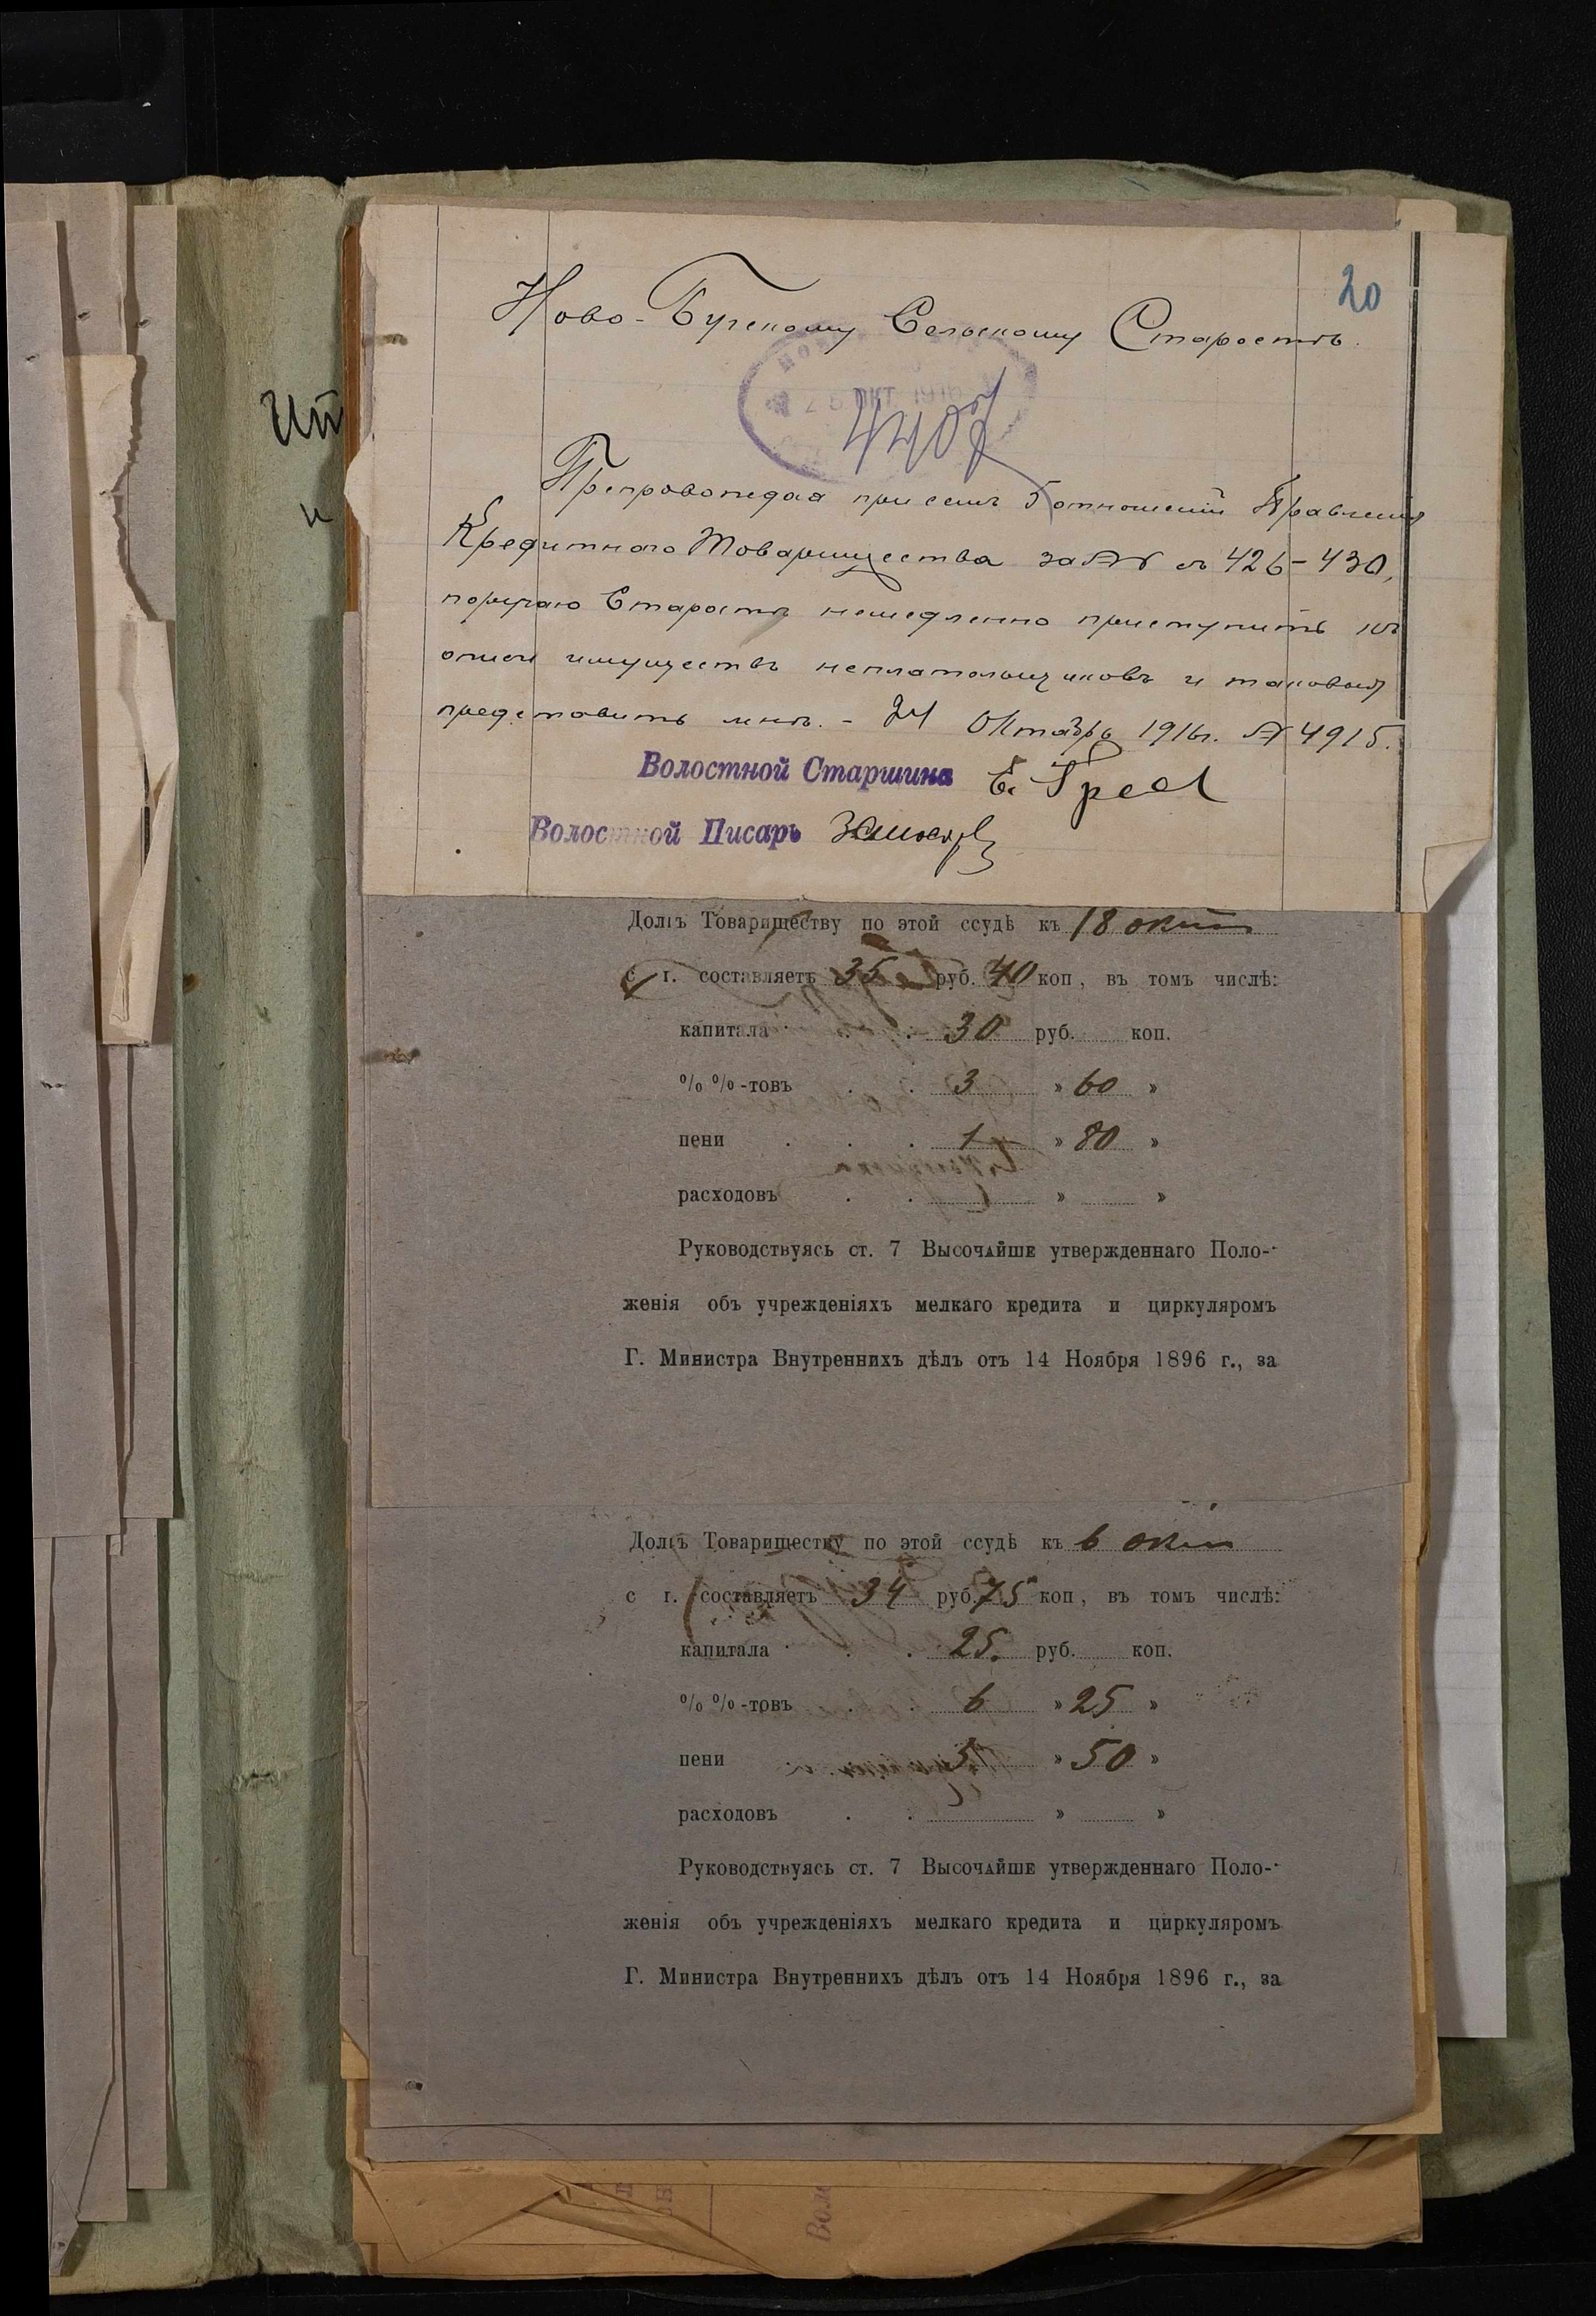 20
Ново-Бугскому Сельскому Старостѣ.
25 ОКТ. 1916
4407
Препровождая при семъ 5 отношеній Правленія
Кредитнаго Товарищества за №№ съ 426-430,
поручаю Старостѣ немедленно приступить къ
описи имуществъ неплательщиковъ и таковыя
представить мнѣ. - 24 Октября 1916г. № 4915.
Волостной Старшина
Волостной Писарь
Долгъ Товариществу по этой ссудѣ къ 18 окт
с г. составляетъ 35 руб. 40 коп, въ томъ числѣ:
капитала . . 30 руб. коп.
% %-товъ . . 3 » 60 »
пени . . . 1 » 80 »
расходовъ . . » »
Руководствуясь ст. 7 Высочайше утвержденнаго Поло-
женія объ учрежденіяхъ мелкаго кредита и циркуляромъ
Г. Министра Внутреннихъ дѣлъ отъ 14 Ноября 1896 г., за
Долгъ Товариществу по этой ссудѣ къ 6 окт
с г. составляетъ 34 руб. 75 коп, въ томъ числѣ:
капитала . . 25. руб. коп.
% %-товъ . . 6 » 25 »
пени . . 3 » 50 »
расходовъ . . » »
Руководствуясь ст. 7 Высочайше утвержденнаго Поло-
женія объ учрежденіяхъ мелкаго кредита и циркуляромъ
Г. Министра Внутреннихъ дѣлъ отъ 14 Ноября 1896 г., за